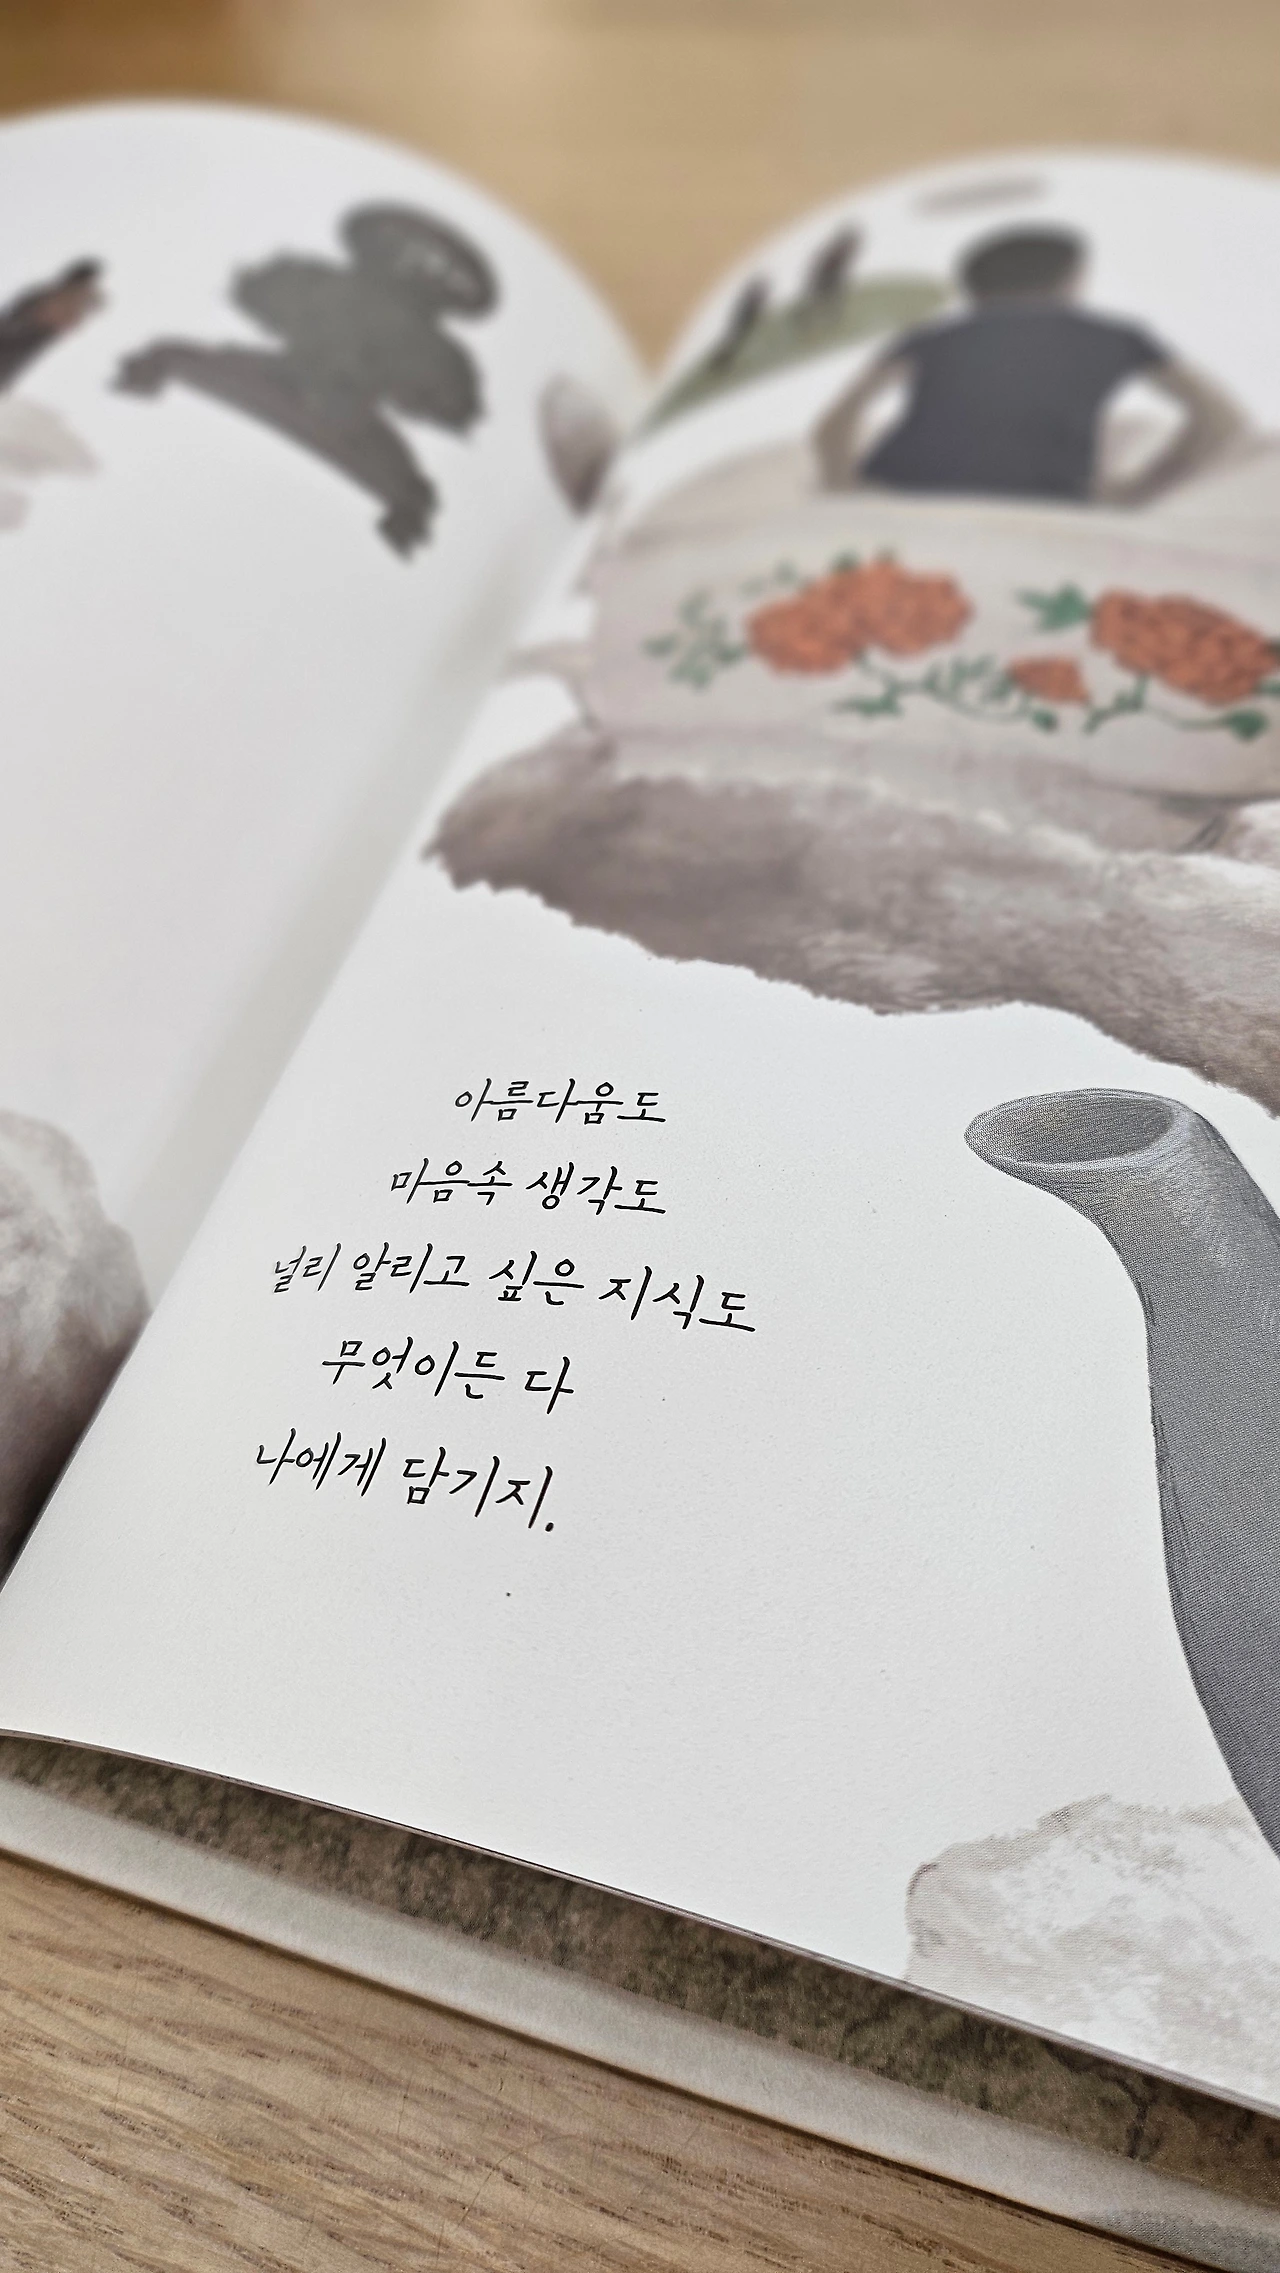 아름다움도
마음속 생각도
널리 알리고 싶은 지식도
무엇이든 다
나에게 담기지.